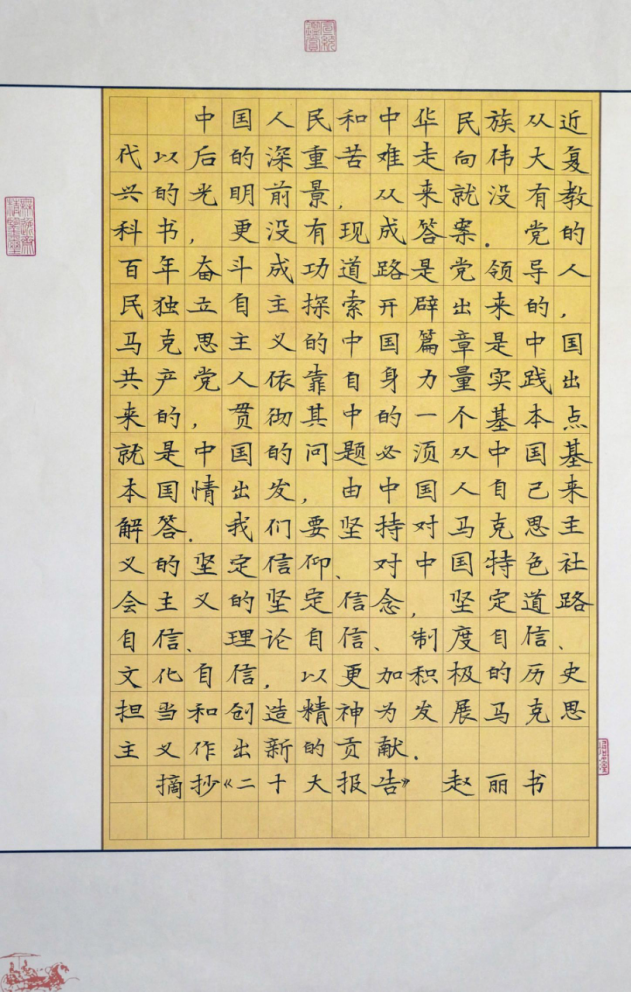 中国人民和中华民族从近
代以后的深重苦难走向伟大复
兴的光明前景，从来就没有教
科书，更没有现成答案。党的
百年奋斗成功道路是党领导人
民独立自主探索开辟出来的，
马克思主义的中国篇章是中国
共产党人依靠自身力量实践出
来的，贯彻其中的一个基本点
就是中国的问题必须从中国基
本国情出发，由中国人自己来
解答。我们要坚持对马克思主
义的坚定信仰、对中国特色社
会主义的坚定信念，坚定道路
自信、理论自信、制度自信、
文化自信，以更加积极的历史
担当和创造精神为发展马克思
主义作出新的贡献。
摘抄《二十大报告》 赵丽书